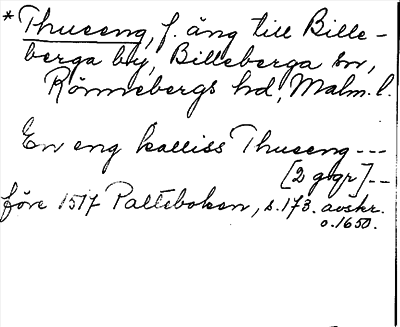 * Thuseng, f. äng till Bille-
berga by, Billeberga sn,
Rönnebergs hd, Malm. l.
En eng kalliss Thuseng ---
[2 ggr] --
före 1517 Palteboken, s. 173. avskr.
o. 1650.